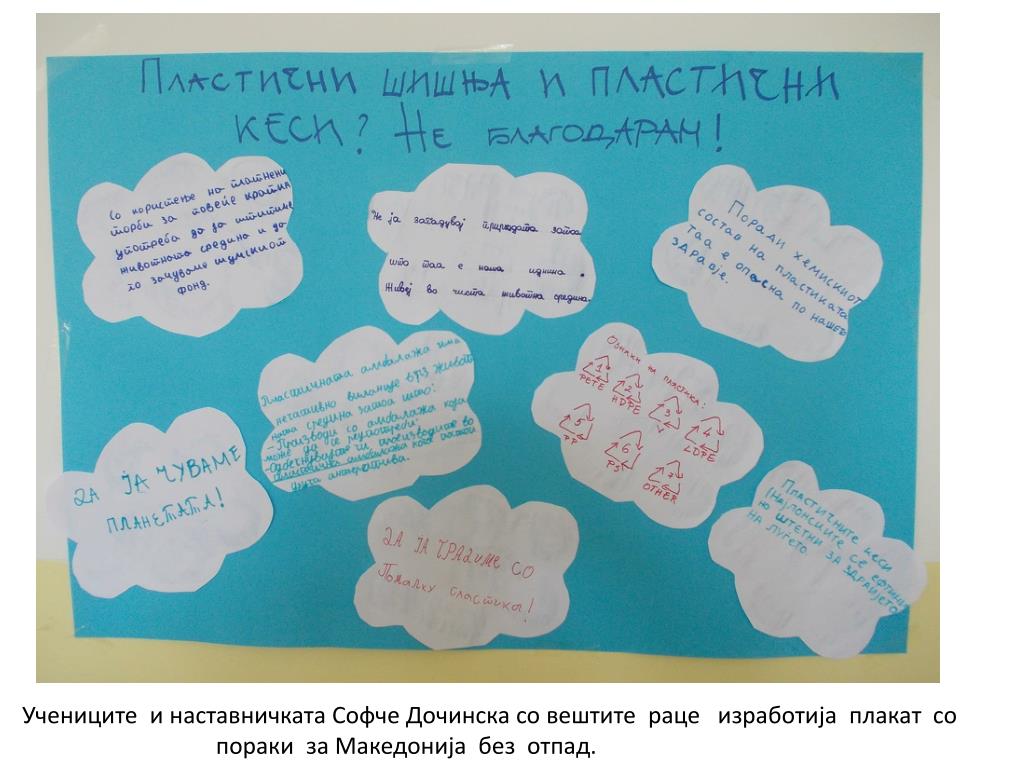 Пластични шишња и пластични
кеси? Не благодарам!
Со користење на платнени
торби за повеќе кратна
употреба да ја штитиме
животната средина и да
го зачуваме шумскиот
фонд.
Не ја загадувај природата затоа
што таа е наша иднина.
Живеј во чиста животна средина.
Поради хемискиот
состав на пластиката
таа е опасна по нашето
здравје.
Пластичната амбалажа има
негативно влијание врз живот
ната средина затоа што:
-Производи со амбалажа која
може да се реупотреби.
пластична амбалажа кога постои
друга алтернатива.
Ознаки на пластика:
1
PETE
2
HDPE
3
V
4
LDPE
5
PP
6
PS
7
OTHER
Да ја чуваме
планетата!
Да ја градиме со
Помалку пластика!
Пластичните кеси
(Најлонските се ефтини
но штетни за здравјето
на луѓето
Учениците и наставничката Софче Дочинска со вештите раце изработија плакат со
пораки за Македонија без отпад.